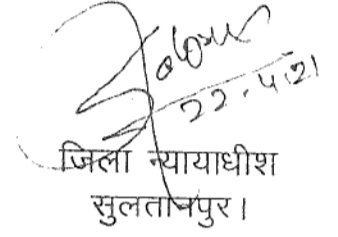 22.4.21
जिला न्यायाधीश
सुलतानपुर।